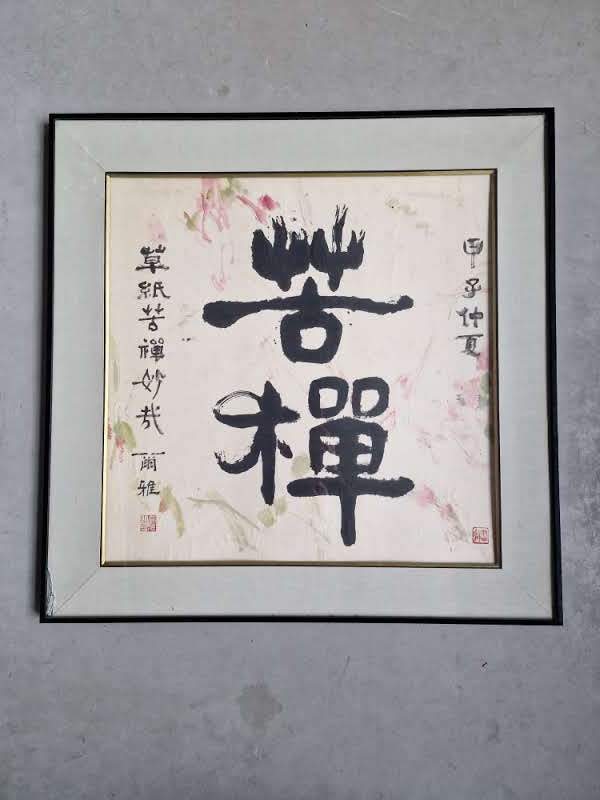 甲子仲夏
苦禪
草紙苦禪妙哉
爾雅